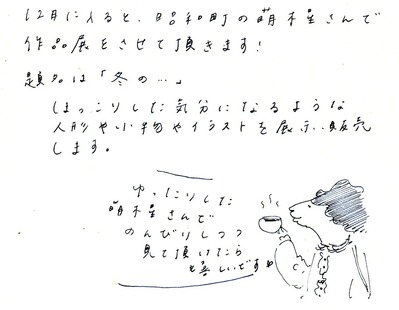 12月に入ると、昭和町の萌木屋さんで
作品展をさせて頂きます!
題名は「冬の…」
ほっこりした気分になるような
人形や小物やイラストを展示、販売
します。
ゆったりした
萌木屋さんで
のんびりしつつ
見て頂けたら
嬉しいです